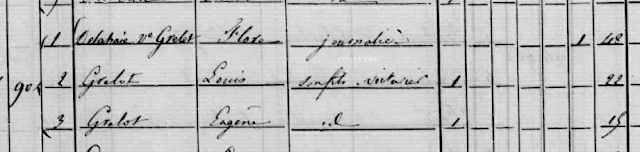 1 Delahaie ve Grelot Flore journalière 1 48
90 2 Grelot Louis son fils voiturier 1 22
3 Grelot Eugène id 1 15